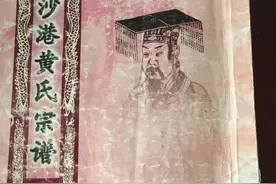 沙港黄氏宗谱